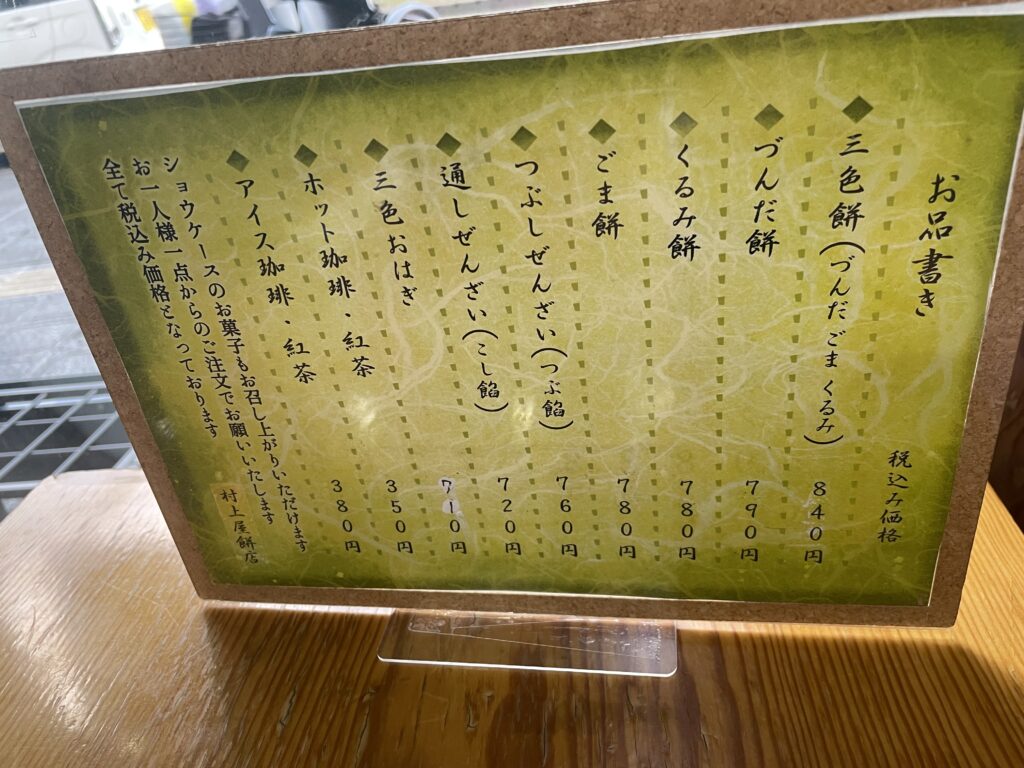 お品書き
税込み価格
◆三色餅(づんだ ごま くるみ) 840円
◆づんだ餅 790円
◆くるみ餅 780円
◆ごま餅 780円
◆つぶしぜんざい(つぶ餡) 760円
◆通しぜんざい(こし餡) 720円
◆三色おはぎ 710円
◆ホット珈琲・紅茶 350円
◆アイス珈琲・紅茶 380円
ショウケースのお菓子もお召し上がりいただけます
お一人様一点からのご注文でお願いいたします
全て税込み価格となっております
村上屋餅店